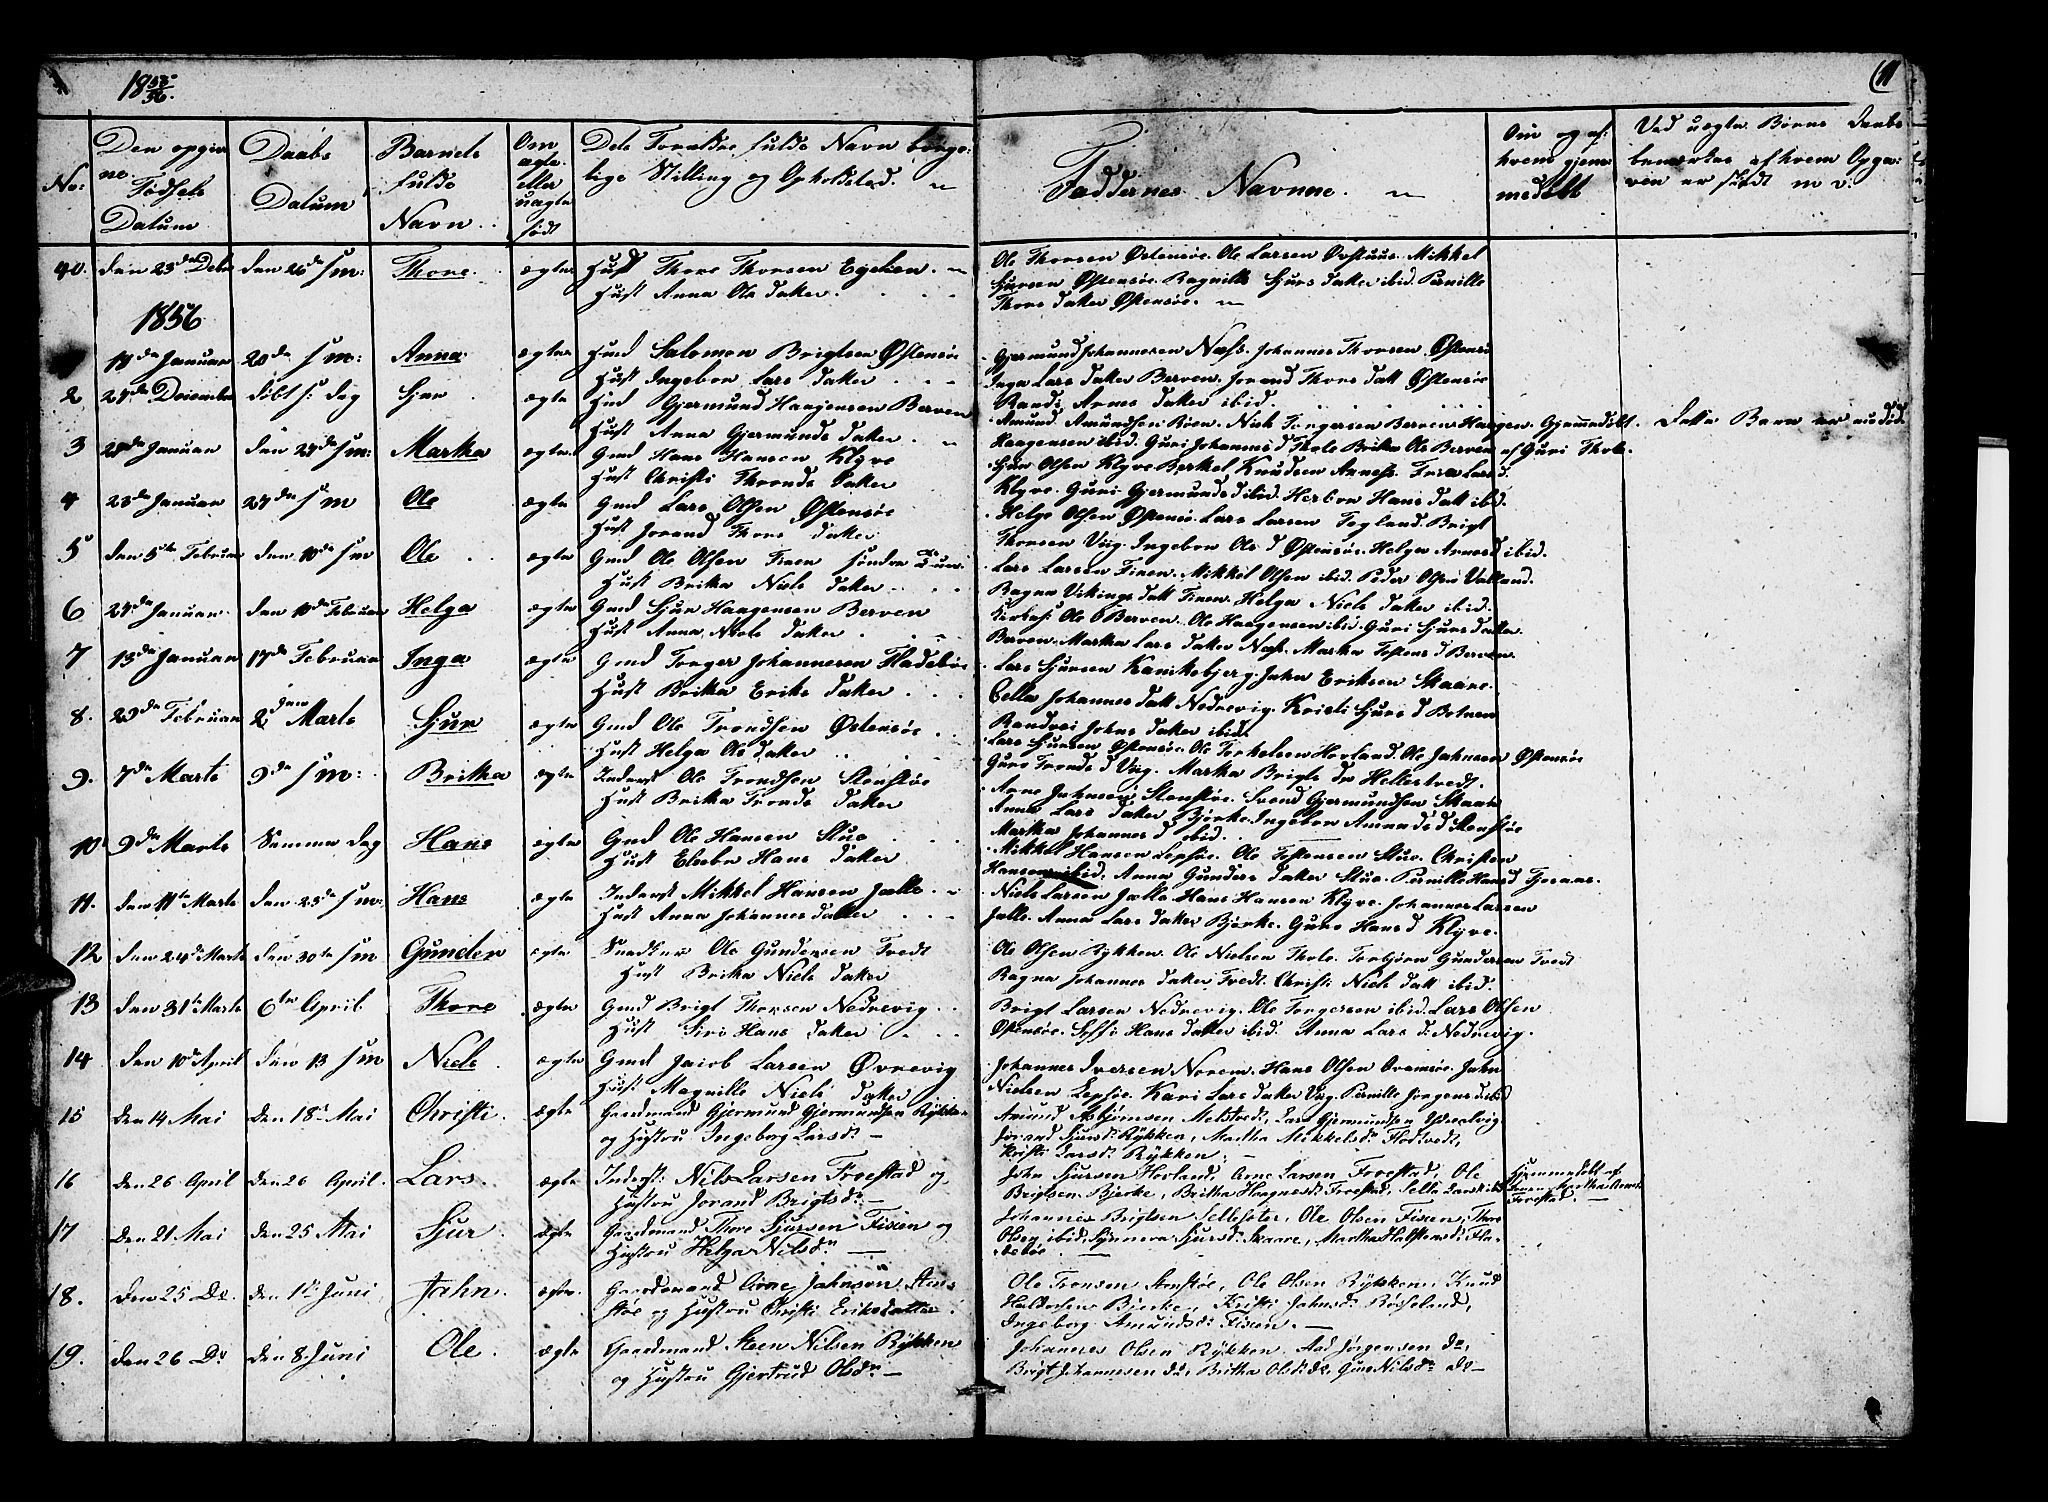 18 55/56.
11
No:
Den opgivne Fødsels Datum
Daabs Datum
Barnets fulde Navn
Om ægte eller uægte født
Dets Forældre fulde Navn borgelige Stilling og Opholdsted.
Faddernes Navne.
Om og af hvem hjemmedøbt
Ved uægte Børns Daab bemærkes af hvem Opgaven er skeedt m v.
40. den 23de Debr den 26de s m: Thore. ægte Husf Thore Thorsen
Hust Anna Ols datter.
Ole Thorsen Østensøe. Ole Larsen Mikkel
Sjursen Østensøe. Ragnilde Sjurs datter ibid. Pernille
Thors datter Østensøe.
1856
19de Januar 20de s m: Anna ægte Salomon Brigtsen Østensøe
Hust Ingebor Lars datter
Gjermund Johannesen Næss. Johannes Thorsen Østensø
Inga Lars datter Berven. Jorand Thors datt Østensøe
Randi Arnes datter ibid.
2 27de December døbt s: dag Sjur ægte Gjermund Haagensen Berven
Hust Anna Gjermunds datter.
Amund Amundsen Niels Torgersen Berven Haagen
Haagensen ibid. Guri Johannes d Thole Britha Ols Berven
Gjemmedøbt af Guri Thole.
Dette Barn er
3 20de Januar den 27de s m: Martha ægte Gmd Hans Hansen Klyve
Hust Christi Thronds datter
Sjur Olsen Klyve Knudsen Lars d
Klyve. Guri Gjermunds d ibid. Herbor Hans datt ibid.
4 23de Januar 27de s m Ole ægte Gmd Lars Olsen Østensøe
Hust Jorand Thors datter
Helge Olsen Østensøe. Lars Larsen Brigt
Thorsen Viig. Ingebor Ols d Østensøe. Helga Arnes d ibid.
5 den 5te Februar den 10de s m Ole ægte Gmd Ole Olsen søndre
Hust Britha Niels datter
Lars Larsen Mikkel Olsen ibid. Peder Olsen
Ragna Vikings datt Helga Niels datter ibid.
6 27de Januar. den 10de Februar Helga ægte Gmd Sjur Haagensen Berven
Hust Anna Niels datter
Ole O Berven. Ole Haagensen ibid. Guri Sjurs datter
Berven. Martha Lars datter Næss. Martha d Berven
7 13de Januar 17de Februar Inga ægte Gmd Torger Johannesen Fladebøe
Hust Britha Eriks datter
Lars Sjursen Jahn Eriksen Skaare.
Johannes datt Nedrevig. Kristi Sjurs d Botnen
Johns datter ibid.
8. 29de Februar 2den Marts Sjur ægte Gmd Ole Trondsen Østensøe
Hust Helga Ols datter
Lars Sjursen Østensøe. Ole Torkelsen Hovland. Ole Jahnsen Østensøe
Guro Tronds d Viig. Martha Brigts dr
9. 7de Marts 9de s m: Britha ægte Inderst Ole Trondsen Stenstøe
Hust Britha Tronds datter
Arne Jahnsen Stenstøe. Svend Gjermundsen Skaare
Anna Lars datter Bjerke. Ingebor Amunds d Stenstøe
Martha Johannes d ibid.
10 9de Marts Samme dag Hans ægte Gmd Ole Hansen Stue
Hust Hans datter
Mikkel Hansen Lepsøe. Ole Stue. Christen
Hansen ibid. Anna Gunders datter Stue. Pernille Hans d
11. den 11te Marts den 23de s m: Hans ægte Inderst Mikkel Hansen Jælle
Hust Anna Johannes datter
Niels Larsen Jælle Hans Hansen Klyve. Johannes Larsen
Jælle. Anna Lars datter Bjerke. Guro Hans d Klyve.
12 den 24de Marts den 30te s m Gunder ægte Snedker Ole Gundersen Tvedt
Hust Britha Niels datter
Ole Olsen Rykken. Ole Nielsen Thole. Torbjørn Gundersen Tvedt
Ragna Johannes datter Tvedt. Christi Niels datt ibid.
13 den 31te Marts 6te April Thore ægte Gmd Brigt Thorsen Nedrevig
Hust Siri Hans datter
Brigt Larsen Nedrevig. Ole Torgersen ibid. Lars Olsen
Østensøe. Hans datter ibid. Anna Lars d: Nedrevig.
14 den 10de April den 13 s m Niels ægte Gmd Jacob Larsen Øvrevig
Hust Magnille Niels datter
Johannes Iversen Norem. Hans Olsen Jahn
Nielsen Lepsøe. Kari Lars datter Viig. Pernille Jørgens d ibid
15 den 14 Mai den 18de Mai Christi. ægte Gaardmand Gjermund Gjermundsen Rykken
og Hustru Ingeborg Larsdr —
Amund Asbjørnsen Lars Gjermundsen
Jorand Sjursdr Rykken, Martha Mikkelsdr
Kristi Larsdr Rykken
16 den 26 April den 26 April. Lars. ægte Inderst: Nils Larsen Froestad og
Hustru Jorand Brigtsdr —
John Sjursen Hovland, Arne Larsen Froestad, Ole
Brigtsen Bjerke, Britha Haagnesdr Froestad,
Hjemmedøbt af
Froestad. —
17 den 21 Mai den 25 Mai Sjur ægte Gaardmand Thore Sjursen Fixen og
Hustru Helga Nilsdr —
Johannes Brigtsen Selleseter, Ole Olsen Fixen, Thore
Olsen ibid, Synneva Sjursd: Skaare, Martha Halstensd: Fladebøe —
18. den 25 Do den 1te Juni Jahn. ægte Gaardmand Arne Jahnsen Stenstøe
og Hustru Christi Eriksdatter.
Ole Tronsen Stenstøe, Ole Olsen Rykken, Knud
Haldorsen Bjerke, Kristi Jahnsdr
Ingeborg Amundsdr Fixen. —
19. den 26 Do den 8 Juni Ole. ægte Gaardmand Steen Nilsen Rykken
og Hustru Gjertrud Olsdr —
Johannes Olsen Rykken. Jørgensen do,
Brigt Johannesen do, Britha Olsdr do, Guro Nilsdr do —